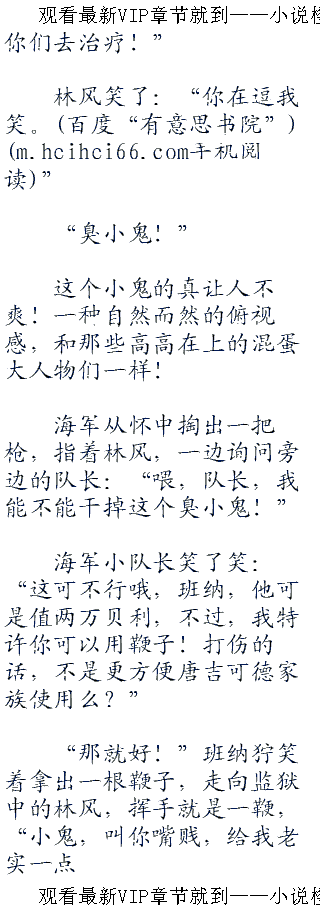 观看最新VIP章节就到——小说
你们去治疗！”
林风笑了：“你在逗我
笑。(百度“有意思书院”)
(m.hcihci66.com手机阅
读)”
“臭小鬼！”
这个小鬼的真让人不
爽！一种自然而然的俯视
感，和那些高高在上的混蛋
大人物们一样！
海军从怀中掏出一把
枪，指着林风，一边询问旁
边的队长：“喂，队长，我
能不能干掉这个臭小鬼！”
海军小队长笑了笑：
“这可不行哦，班纳，他可
是值两万贝利，不过，我特
许你可以用鞭子！打伤的
话，不是更方便唐吉可德家
族使用么？”
“那就好！”班纳狞笑
着拿出一根鞭子，走向监狱
中的林风，挥手就是一鞭，
“小鬼，叫你嘴贱，给我老
实一点
观看最新VIP章节就到——小说